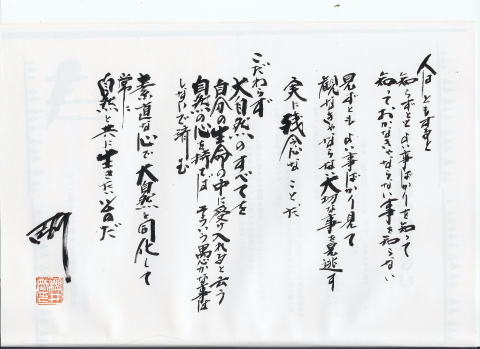 人はともすると
知らずともよい事ばかりを知って
知っておかなきゃならない事を知らない
見ずともよい事ばかり見て
観なきゃならない大切な事を見逃す
実に残念なことだ
こだわらず
大自然のすべてを
自分の生命の中に受け入れると云う
自然の心を持てば そういう愚かな事は
しないで済む
素直な心で大自然と同化して
常に
自然と共に生きたいものだ